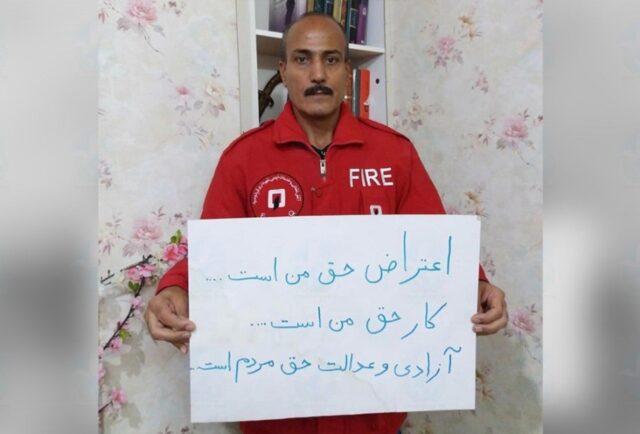 FIRE
اعتراض حق من است....
کار حق من است...
آزادی و عدالت حق مردم است..